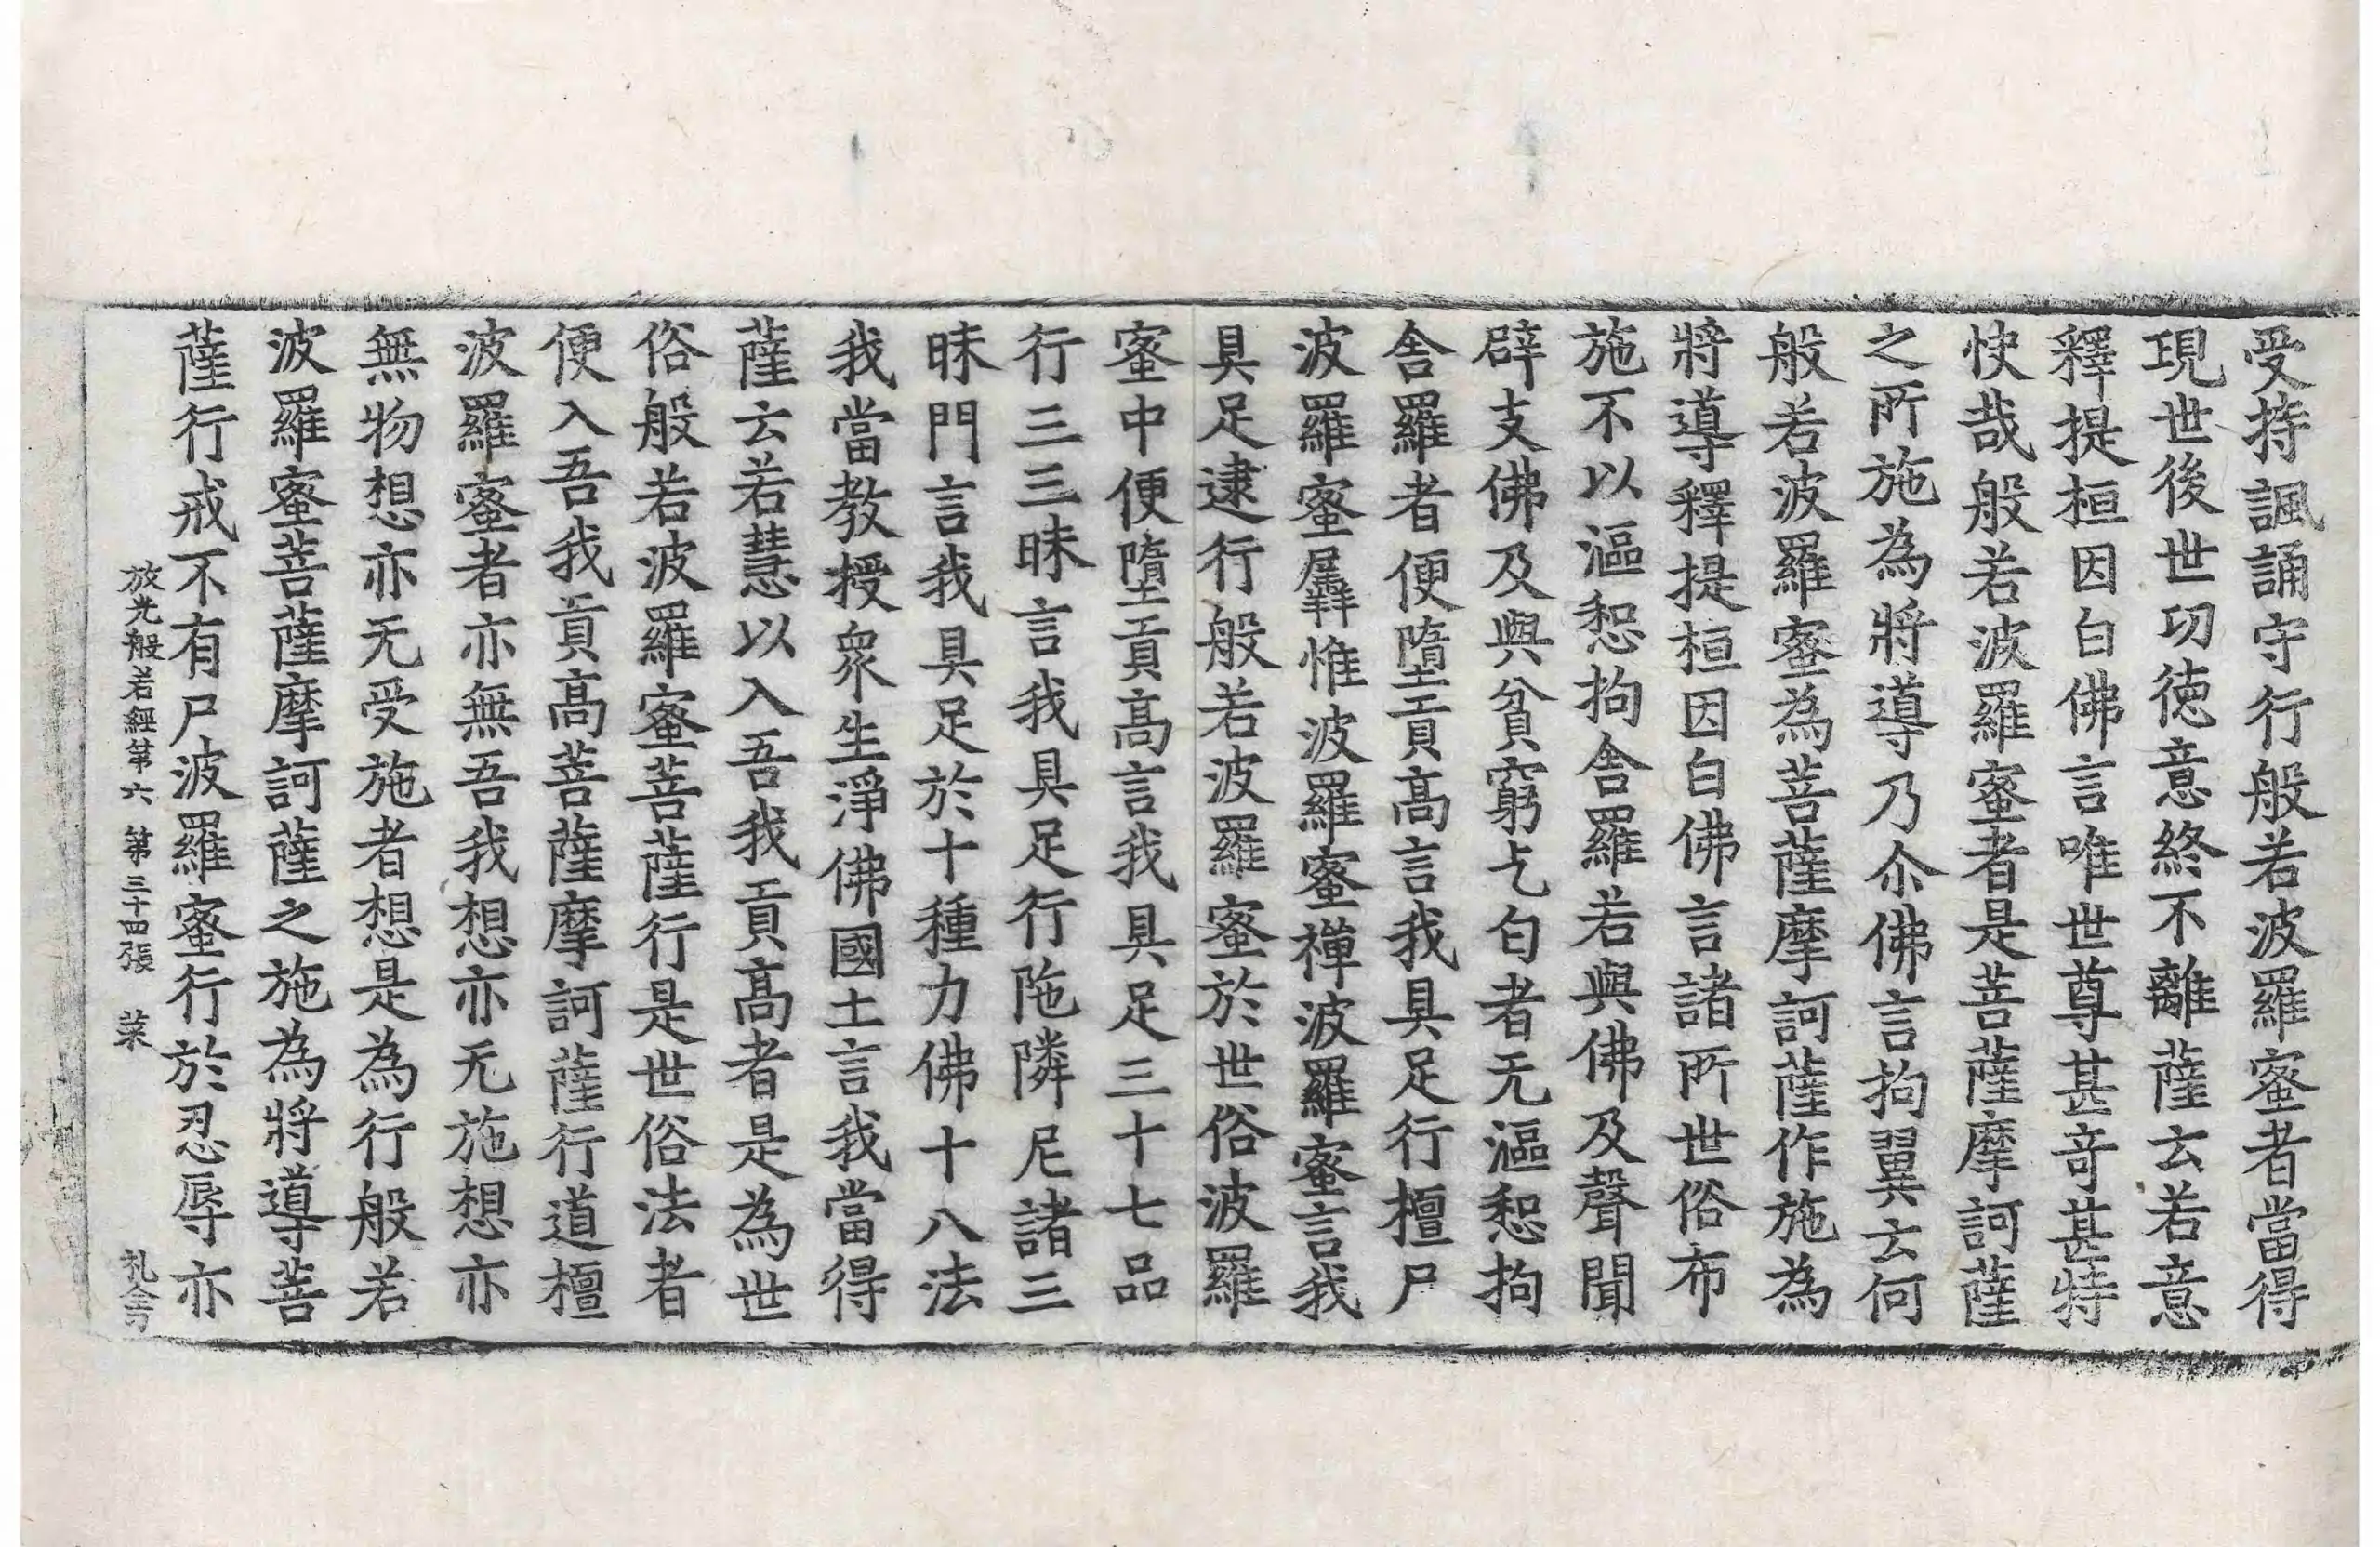 受持諷誦守行般若波羅蜜者當得
現世後世功徳意終不離薩云若意
釋提桓因白佛言唯世尊甚竒甚特
快哉般若波羅蜜者是菩薩摩訶薩
之所施為將導乃尒佛言拘翼云何
般若波羅蜜為菩薩摩訶薩作施為
將導釋提桓因白佛言諸所世俗布
施不以漚惒拘舎羅若與佛及聲聞
辟支佛及與貧窮乞匂者无漚惒拘
舎羅者便墮貢髙言我具足行檀尸
波羅蜜羼惟波羅蜜禪波羅蜜言我
具足逮行般若波羅蜜於世俗波羅
蜜中便墮貢髙言我具足三十七品
行三三昧言我具足行陁隣尼諸三
昧門言我具足於十種力佛十八法
我當教授衆生淨佛國土言我當得
薩云若慧以入吾我貢髙者是為世
俗般若波羅蜜菩薩行是世俗法者
便入吾我貢髙菩薩摩訶薩行道檀
波羅蜜者亦無吾我想亦无施想亦
無物想亦无受施者想是為行般若
波羅蜜菩薩摩訶薩之施為將導菩
薩行戒不有尸波羅蜜行於忍辱亦
放光般若經第六 第三十四張 菜